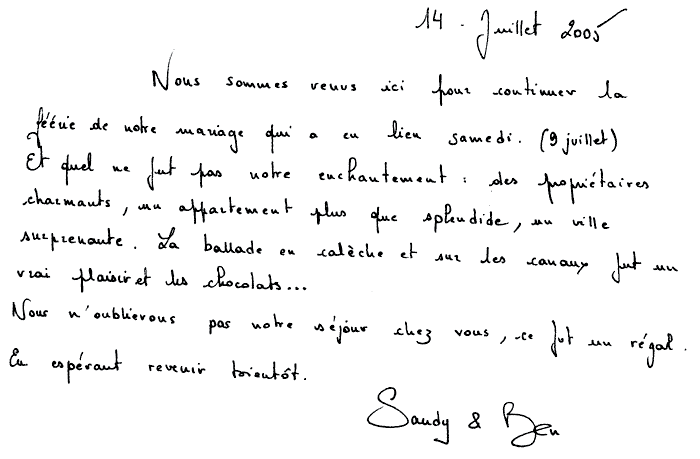 14 . Juillet 2005
Nous sommes venus ici pour continuer la
féérie de notre mariage qui a eu lieu samedi. (9 juillet)
Et quel ne fut pas notre enchantement : des propriétaires
charmants, un appartement plus que splendide, un ville
surprenante. La ballade en calèche et sur les canaux fut un
vrai plaisir et les chocolats...
Nous n'oublierons pas notre séjour chez vous, ce fut un régal.
En espérant revenir bientôt.
Sandy & Ben